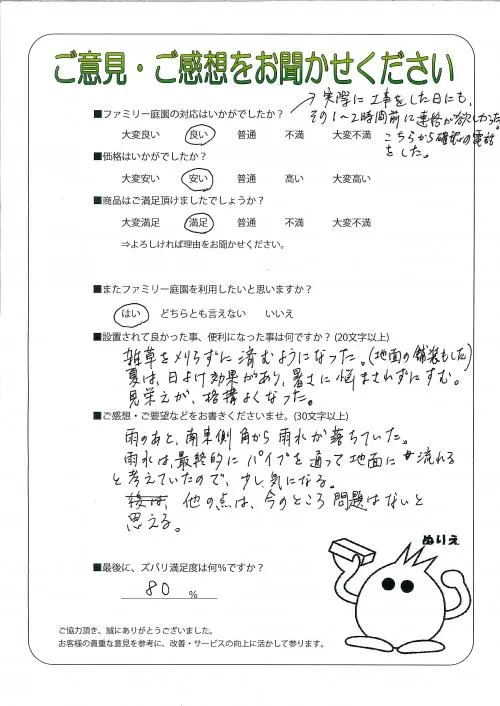 ご意見・ご感想をお聞かせください
■ファミリー庭園の対応はいかがでしたか？
→実際に工事をした日にも、
その1〜2時間前に連絡が欲しかった。
こちらから確認の電話
をした。
大変良い 良い 普通 不満 大変不満
■価格はいかがでしたか？
大変安い 安い 普通 高い 大変高い
■商品はご満足頂けましたでしょうか？
大変満足 満足 普通 不満 大変不満
⇒よろしければ理由をお聞かせください。
■またファミリー庭園を利用したいと思いますか？
はい どちらとも言えない いいえ
■設置されて良かった事、便利になった事は何ですか？(20文字以上)
雑草を刈らずに済むようになった。(地面の舗装もした)
夏は、日よけ効果があり、暑さに悩まされずにすむ。
見栄えが、格構よくなった。
■ご感想・ご要望などをお書きくださいませ。(30文字以上)
雨のあと、南東側角から雨水が落ちていた。
雨水は、最終的にパイプを通って地面に流れる
と考えていたので、少し気になる。
他の点は、今のところ問題はないと
思える。
■最後に、ズバリ満足度は何％ですか？
80 ％
ぬりえ
ご協力頂き、誠にありがとうございました。
お客様の貴重な意見を参考に、改善・サービスの向上に活かして参ります。